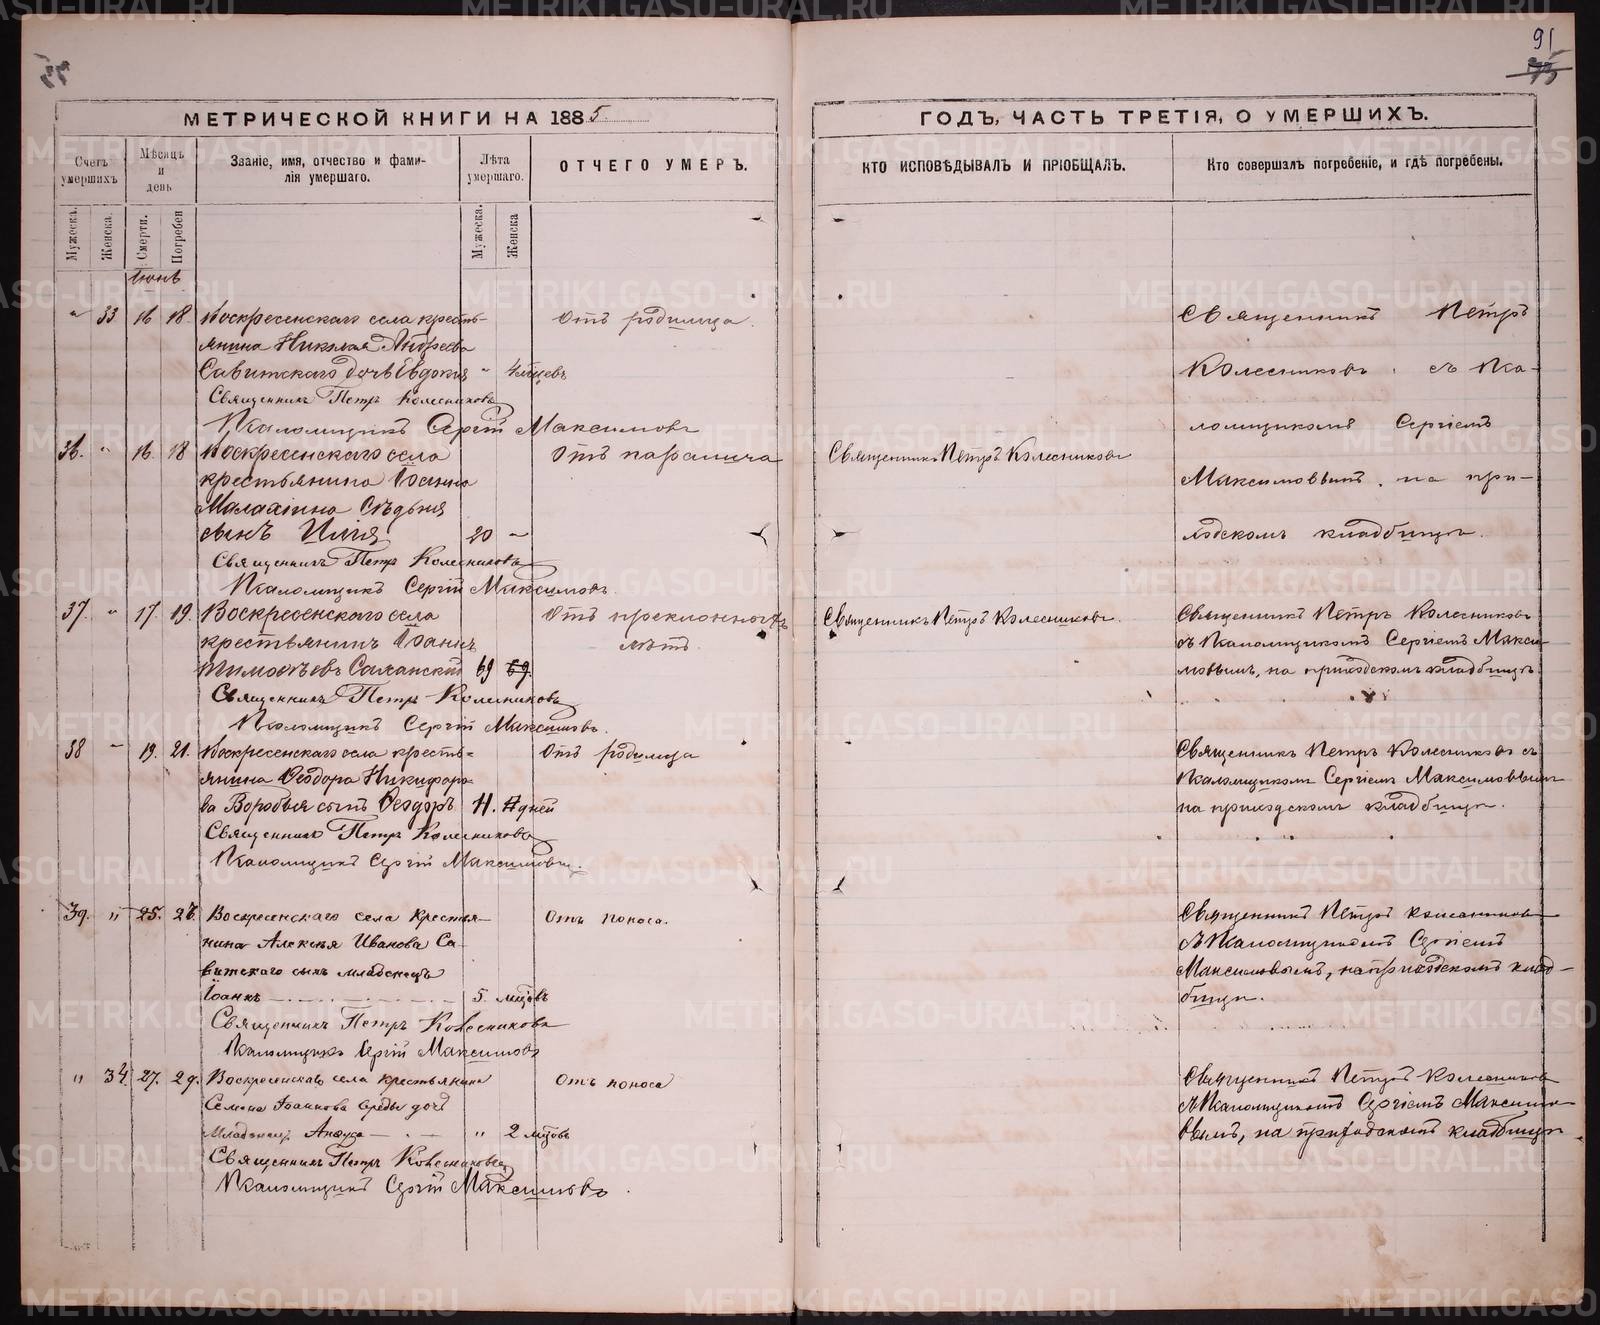 91
75
МЕТРИЧЕСКОЙ КНИГИ НА 1885
ГОДЪ, ЧАСТЬ ТРЕТІЯ, О УМЕРШИХЪ.
Счетъ умершихъ
Мѣсяцъ и день
Званіе, имя, отчество и фами-
лія умершаго.
Лѣта умершаго.
ОТЧЕГО УМЕРЪ.
КТО ИСПОВѢДЫВАЛЪ И ПРІОБЩАЛЪ.
Кто совершалъ погребеніе, и гдѣ погребены.
Мужеска.
Женска.
Смерти.
Погребен
Мужеска.
Женска
Іюнь
" 33 16 18 Воскресенскаго села кресть-
янина Николая Андреева
Савитскаго дочь Евдокия " 4 мцевъ
Отъ родимца.
Священникъ Петръ Колесниковъ
Псаломщикъ Сергій Максимовъ
Священникъ Петръ
Колесниковъ съ Пса-
ломщикомъ Сергіемъ
Максимовымъ, на при-
ходскомъ кладбищѣ.
36. " 16. 18 Воскресенскаго села
крестьянина Іоанна
Малахіина
сынъ Илія 20 "
Священникъ Петръ Колесниковъ
Священникъ Петръ Колесниковъ
Псаломщикъ Сергій Максимовъ.
37. " 17. 19. Воскресенскаго села
крестьянинъ Іоаннъ
Тимоѳѣевъ Саханскій 69 69.
Отъ преклонныхъ
лѣтъ.
Священникъ Петръ Колесниковъ.
Священникъ Петръ Колесниковъ
Псаломщикъ Сергій Максимовъ.
Священникъ Петръ Колесниковъ
съ Псаломщикомъ Сергіемъ Макси-
мовымъ, на приходскомъ кладбищѣ.
38 " 19. 21. Воскресенскаго села кресть-
янина Ѳеодора Никифоро-
ва Воробья сынъ Ѳеодоръ 11. дней
Отъ родимца
Священникъ Петръ Колесниковъ
Псаломщикъ Сергій Максимовъ.
Священникъ Петръ Колесниковъ съ
Псаломщикомъ Сергіемъ Максимовымъ
на приходскомъ кладбищѣ.
39. " 25. 27. Воскресенскаго села крестья-
нина Алексѣя Иванова Са-
витскаго сынъ младенецъ
Іоаннъ 5. мцовъ
Отъ поноса.
Священникъ Петръ Колесниковъ
Псаломщикъ Сергій Максимовъ
Священникъ Петръ Колесниковъ
съ Псаломщикомъ Сергіемъ
Максимовымъ, на приходскомъ клад-
бищѣ.
" 34. 27. 29. Воскресенскаго села крестьянина
Семена Іоаннова Среды дочь
Младенец. " 2 мцовъ
Отъ поноса
Священникъ Петръ Колесниковъ
Псаломщикъ Сергій Максимовъ.
Священникъ Петръ Колесниковъ
съ Псаломщикомъ Сергіемъ Максимо-
вымъ, на приходскомъ кладбищѣ
METRIKI.GASO-URAL.RU